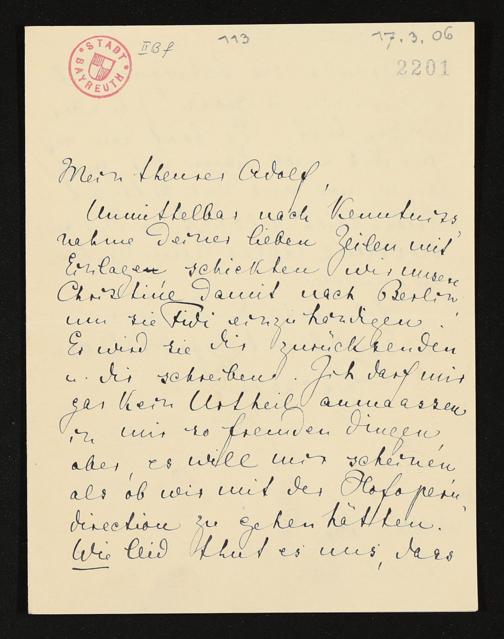 STADT BAYREUTH
II B f
113
17.3.06
2201
Mein theurer Adolf,
Unmittelbar nach Kenntniss
nahme Deiner lieben Zeilen mit
Einlagen schickten wir unsere
Christine damit nach Berlin
um sie Fidi einzuhändigen.
Er wird sie dir zurücksenden
u. dir schreiben. Ich darf mir
gar kein Urtheil anmaassen
in mir so fremden Dingen
aber es will mir scheinen
als ob wir mit der Hofopern
direction zu gehen hätten.
Wie leid thut es uns, dass